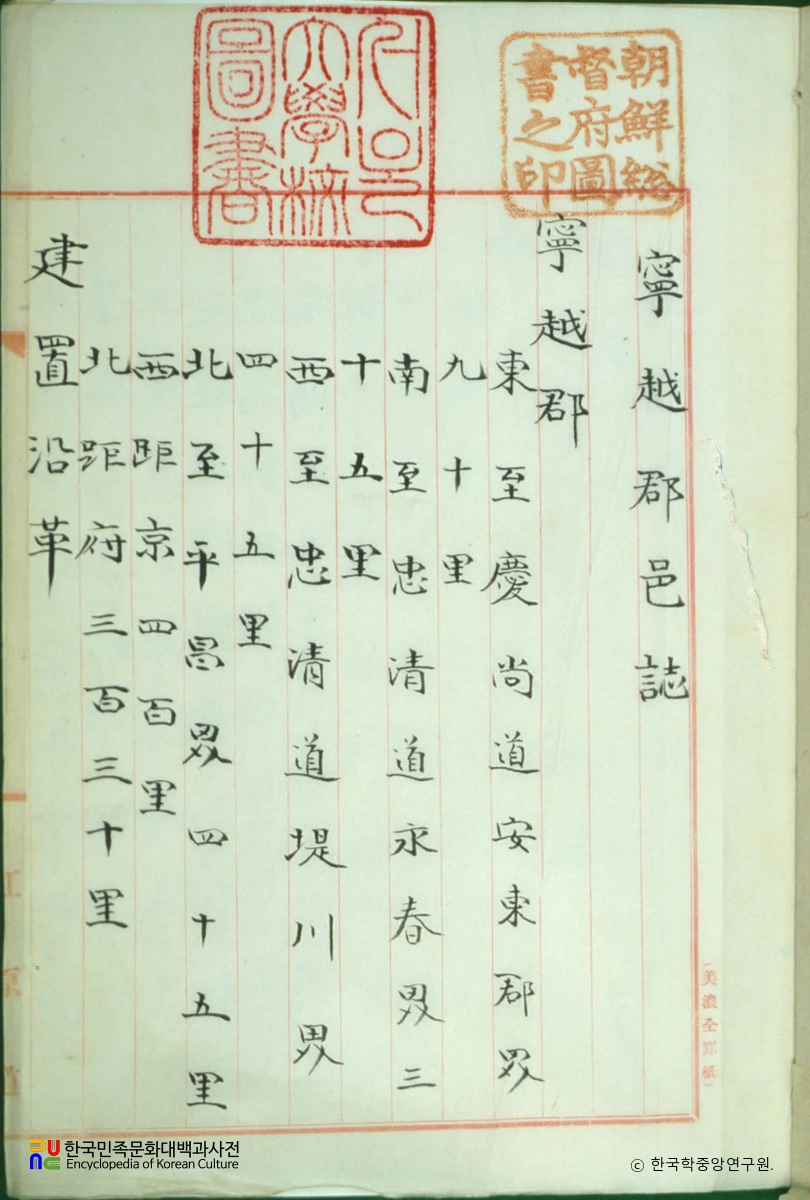 寧越郡邑誌
寧越郡
東至慶尚道安東郡界
九十里
南至忠清道永春界三
十五里
西至忠清道堤川界
四十五里
北至平昌界四十五里
西距京四百里
北距府三百三十里
建置沿革
朝鮮総
督府圖
書之印
大學校
圖書
(美濃全罫紙)
江原道
한국민족문화대백과사전
Encyclopedia of Korean Culture
ⓒ 한국학중앙연구원.